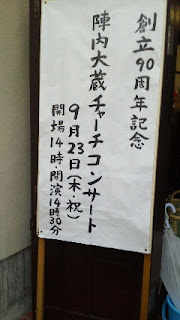 創立90周年記念
陣内大蔵チャーチコンサート
9月23日(木・祝)
開場14時・開演14時30分